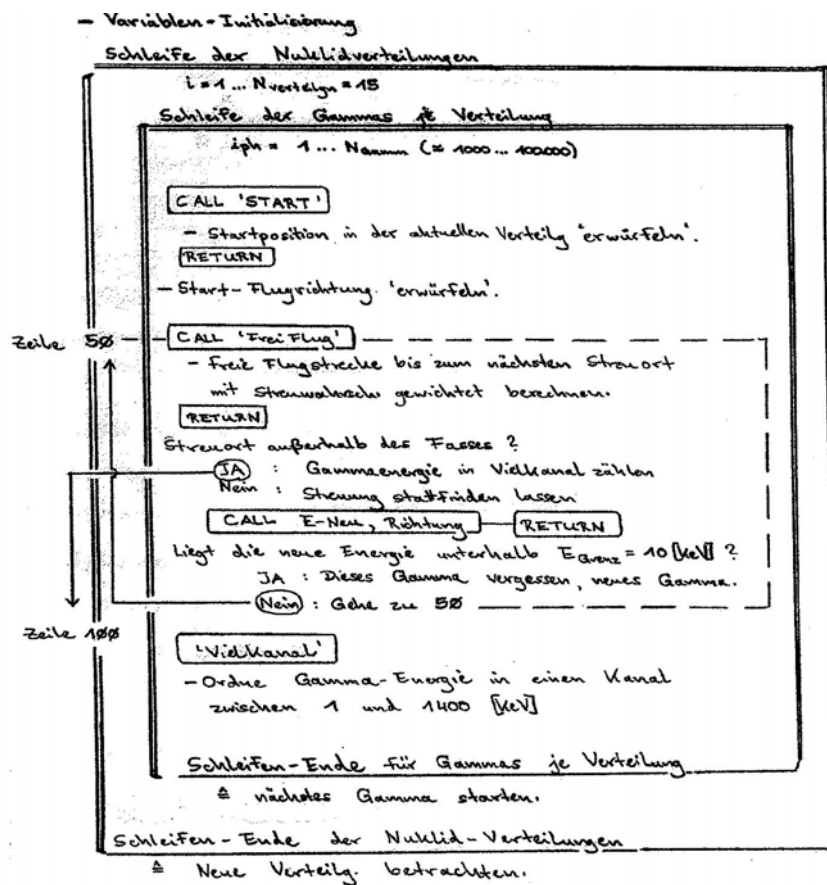 - Variablen-Initialisierung
Schleife der Nuklidverteilungen
i = 1 ... Nverteilgn = 15
Schleife der Gammas je Verteilung
iph = 1 ... NGamm (≈ 1000 ... 100.000)
CALL 'START'
- Startposition in der aktuellen Verteilg 'erwürfeln'.
RETURN
- Start-Flugrichtung 'erwürfeln'.
Zeile 5Ø CALL 'FreiFlug'
- freie Flugstrecke bis zum nächsten Streuort
mit Streuwahrsch gewichtet berechnen.
RETURN
Streuort außerhalb des Fasses ?
JA : Gammaenergie in Vielkanal zählen
Nein : Streuung stattfinden lassen
CALL E-Neu, Richtung RETURN
Liegt die neue Energie unterhalb EGrenz = 10 [keV] ?
JA : Dieses Gamma vergessen, neues Gamma.
Nein : Gehe zu 5Ø
Zeile 1ØØ
'Vielkanal'
- Ordne Gamma-Energie in einen Kanal
zwischen 1 und 1400 [keV]
Schleifen-Ende für Gammas je Verteilung
≙ nächstes Gamma starten.
Schleifen-Ende der Nuklid-Verteilungen
≙ Neue Verteilg. betrachten.